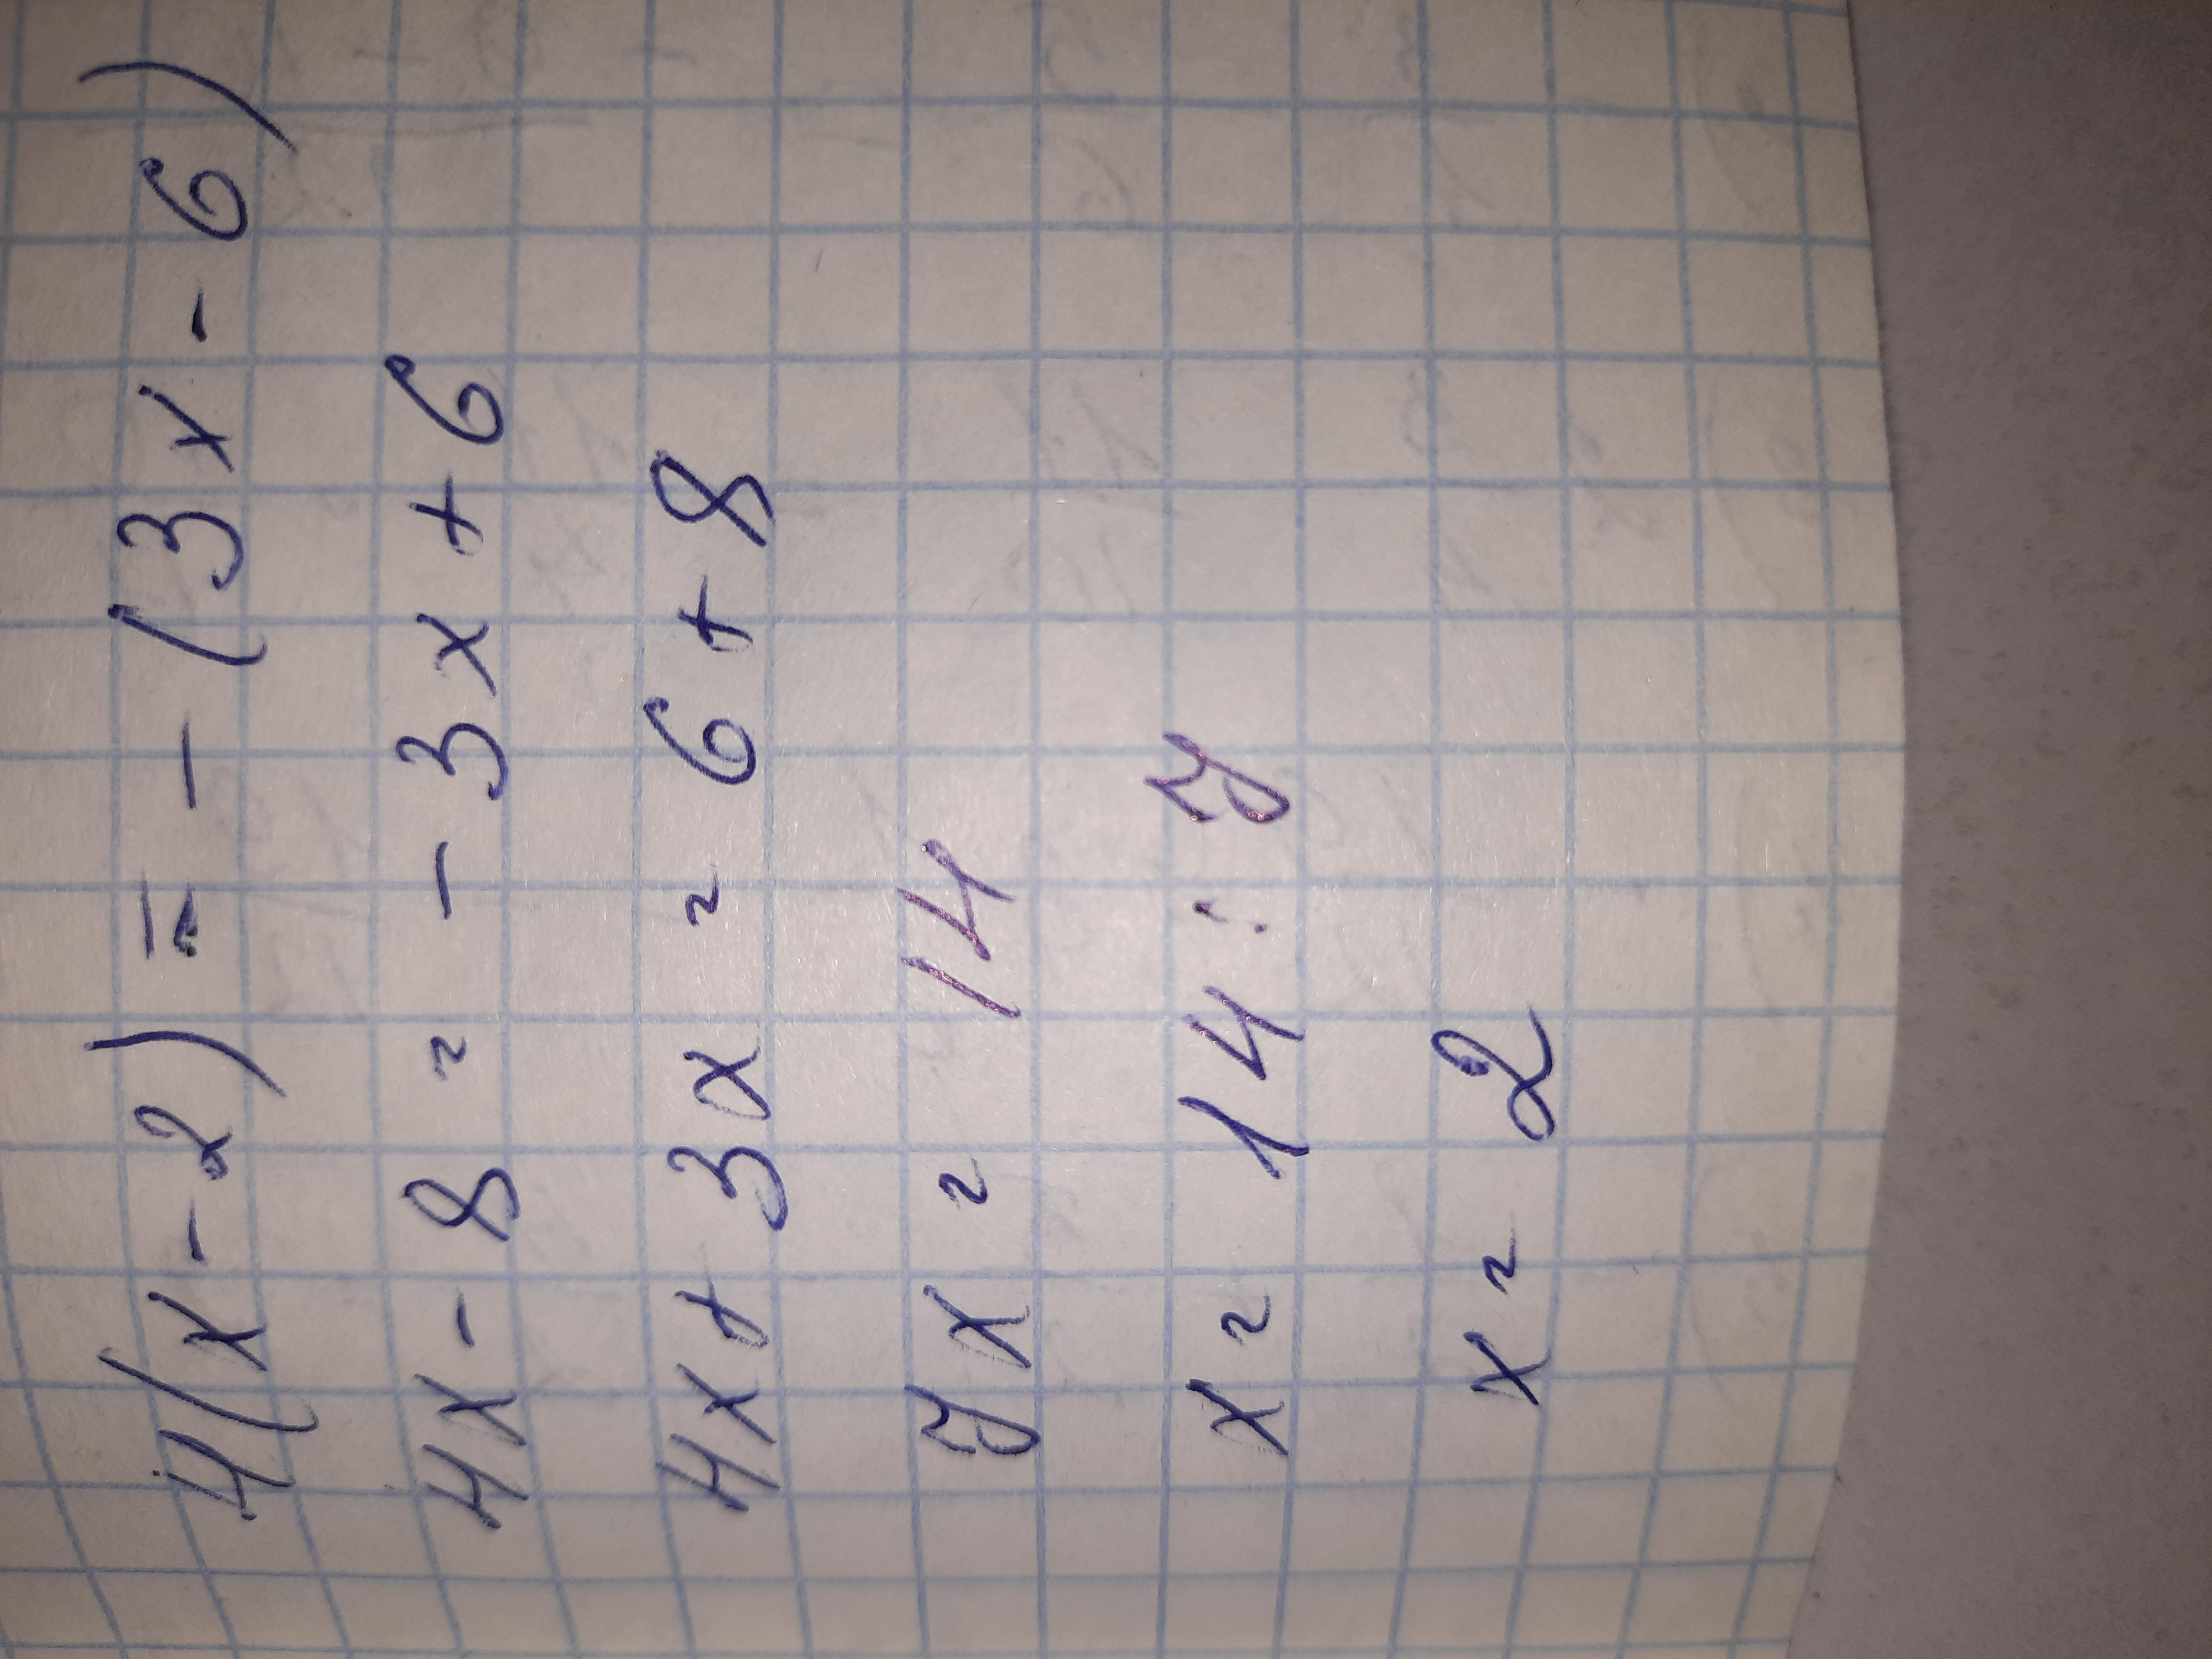 4(x-2) = -(3x-6)
4x-8 = -3x+6
4x+3x = 6+8
7x = 14
x = 14:7
x = 2